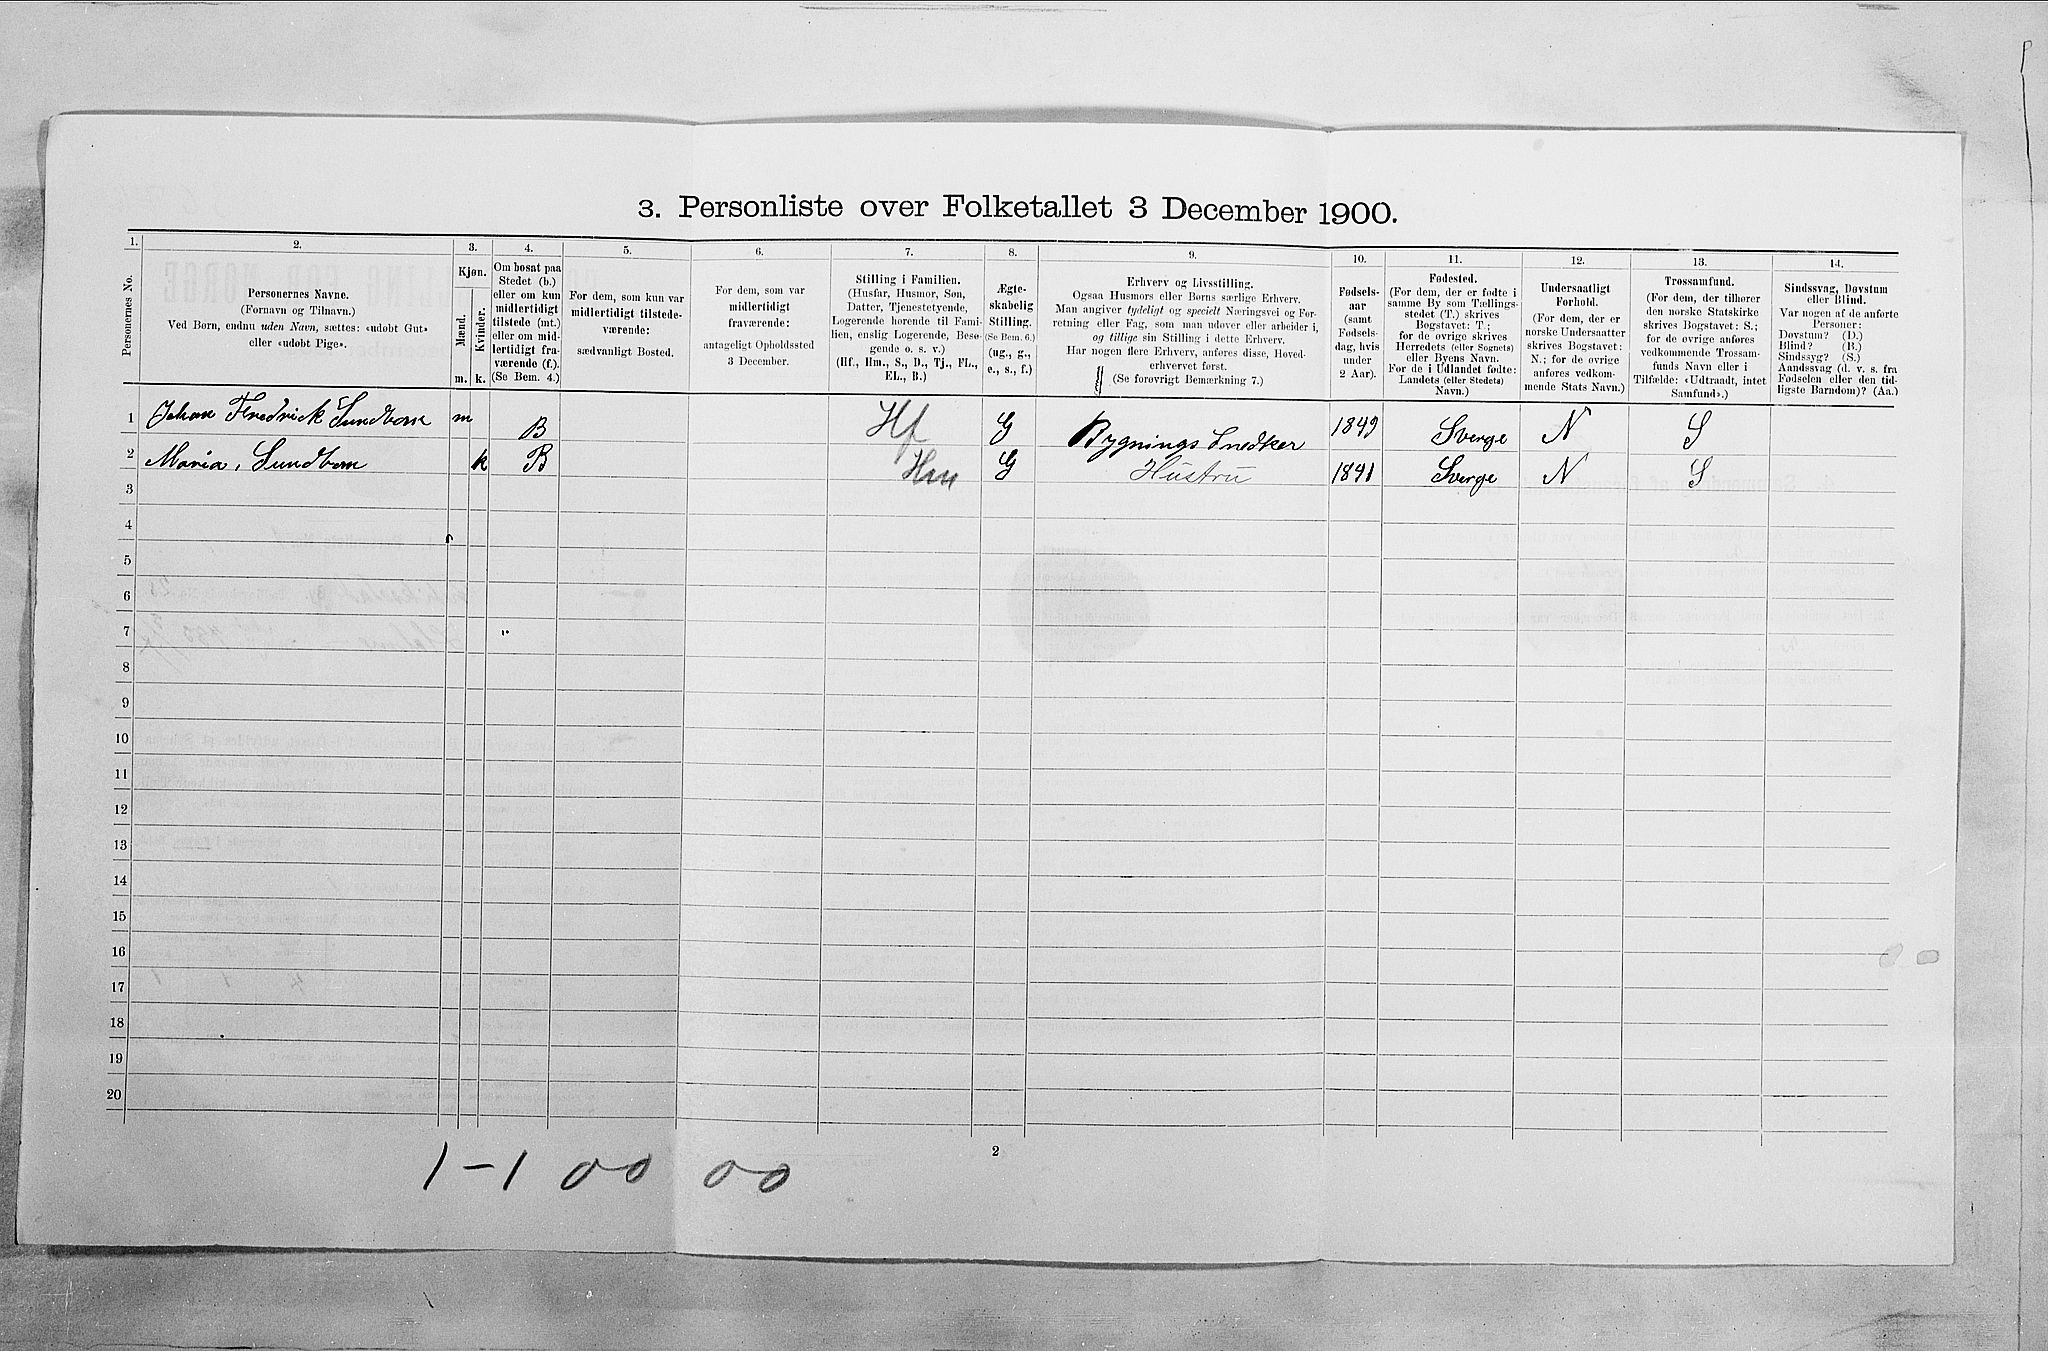 3. Personliste over Folketallet 3 December 1900.
1. 2. 3. 4. 5. 6. 7. 8. 9. 10. 11. 12. 13. 14.
Personernes No.
Personernes Navne.
(Fornavn og Tilnavn.)
Ved Børn, endnu uden Navn, sættes: «udøbt Gut»
eller «udøbt Pige».
Kjøn.
Mænd.
Kvinder.
m. k.
Om bosat paa
Stedet (b.)
eller om kun
midlertidigt
tilstede (mt.)
eller om mid-
lertidigt fra-
værende (f.).
(Se Bem. 4.)
For dem, som kun var
midlertidigt tilstede-
værende:
sædvanligt Bosted.
For dem, som var
midlertidigt
fraværende:
antageligt Opholdssted
3 December.
Stilling i Familien.
(Husfar, Husmor, Søn,
Datter, Tjenestetyende,
Logerende hørende til Fami-
lien, enslig Logerende, Besø-
gende o. s. v.)
(Hf., Hm., S., D., Tj., FL.,
EL., B.)
Ægte-
skabelig
Stilling.
(Se Bem. 6.)
(ug., g.,
e., s., f.)
Erhverv og Livsstilling.
Ogsaa Husmors eller Børns særlige Erhverv.
Man angiver tydeligt og specielt Næringsvei og For-
retning eller Fag, som man udøver eller arbeider i,
og tillige sin Stilling i dette Erhverv.
Har nogen flere Erhverv, anføres disse, Hoved-
erhvervet først.
(Se forøvrigt Bemærkning 7.)
Fødsels-
aar
(samt
Fødsels-
dag, hvis
under
2 Aar).
Fødested.
(For dem, der er fødte i
samme By som Tællings-
stedet (T.) skrives
Bogstavet: T.;
for de øvrige skrives
Herredets (eller Sognets)
eller Byens Navn.
For de i Udlandet fødte:
Landets (eller Stedets)
Navn.)
Undersaatligt
Forhold.
(For dem, der er
norske Undersaatter
skrives Bogstavet:
N.; for de øvrige
anføres vedkom-
mende Stats Navn.)
Trossamfund.
(For dem, der tilhører
den norske Statskirke
skrives Bogstavet: S.;
for de øvrige anføres
vedkommende Trossam-
funds Navn eller i
Tilfælde: «Udtraadt, intet
Samfund».)
Sindssvag, Døvstum
eller Blind.
Var nogen af de anførte
Personer:
Døvstum? (D.)
Blind? (B.)
Sindssyg? (S.)
Aandssvag (d. v. s. fra
Fødselen eller den tid-
ligste Barndom)? (Aa.)
1 Johan Fredrick Sundbom m B Hf G Bygnings Snedker 1849 Sverge N S
2 Maria, Sundbom k B Hm G Hustru 1841 Sverge N S
3
4
5
6
7
8
9
10
11
12
13
14
15
16
17
18
19
20
2
1-1 00 00